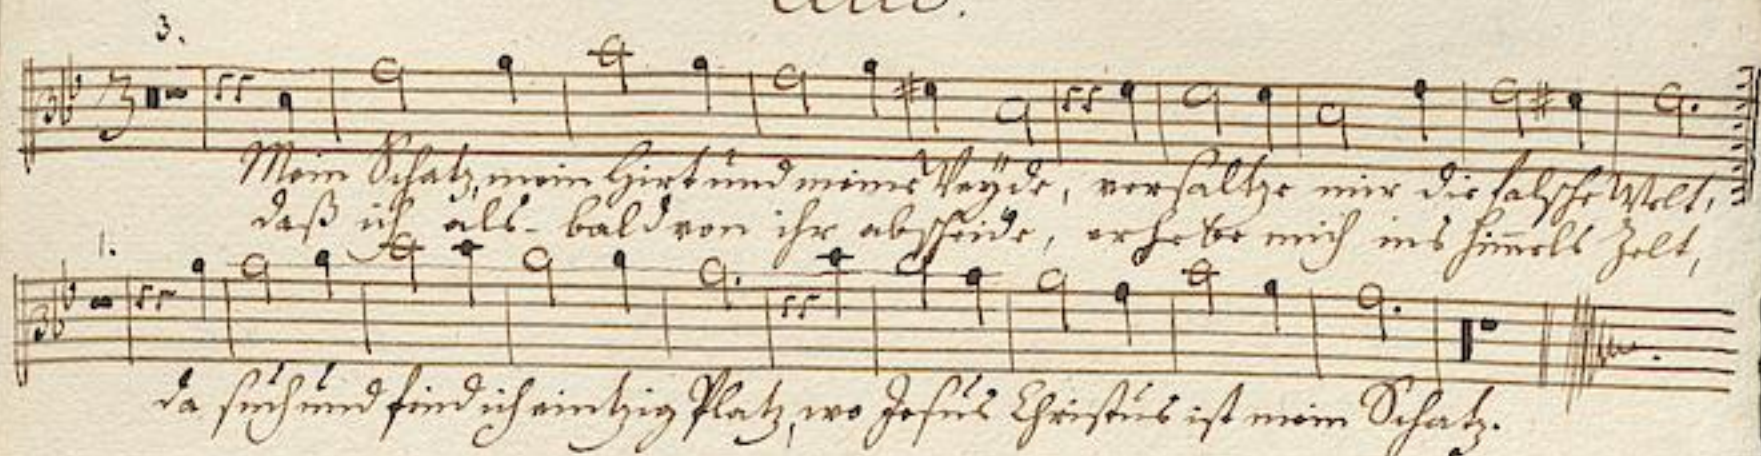 3.
Mein Schatz, mein Hirt und meine Weyde, versaltze mir die falsche Welt,
daß ich als-bald von ihr abscheide, erhebe mich ins Himels Zelt,
1.
da such und find ich eintzig Platz, wo Jesus Christus ist mein Schatz.